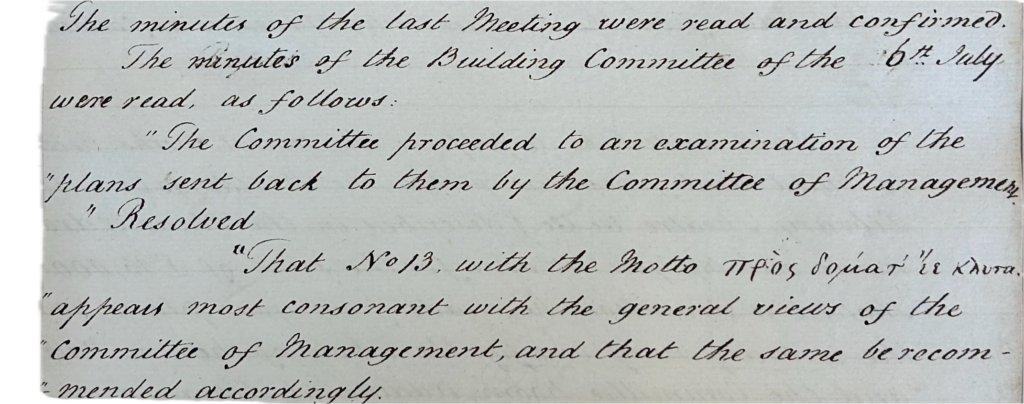 The minutes of the last Meeting were read and confirmed.
The minutes of the Building Committee of the 6th July
were read, as follows:
"The Committee proceeded to an examination of the
"plans sent back to them by the Committee of Management.
" Resolved
"That No 13. with the Motto πρὸς δομάτ' ἵε κλυτα.
"appears most consonant with the general views of the
"Committee of Management, and that the same be recom-
"-mended accordingly.